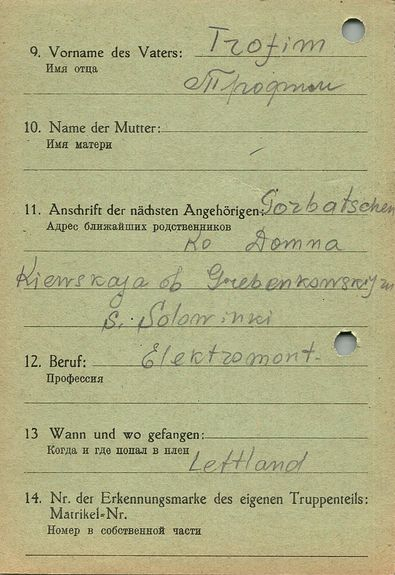 9. Vorname des Vaters: Trofim
Имя отца
Трофим
10. Name der Mutter:
Имя матери
11. Anschrift der nächsten Angehörigen: Gorbatschen
Адрес ближайших родственников
ko Domna
Kiewskaja ob Grebenkowskij
S. Solowinki
12. Beruf: Elektromont.
Профессия
13 Wann und wo gefangen:
Когда и где попал в плен
Lettland
14. Nr. der Erkennungsmarke des eigenen Truppenteils:
Matrikel-Nr.
Номер в собственной части